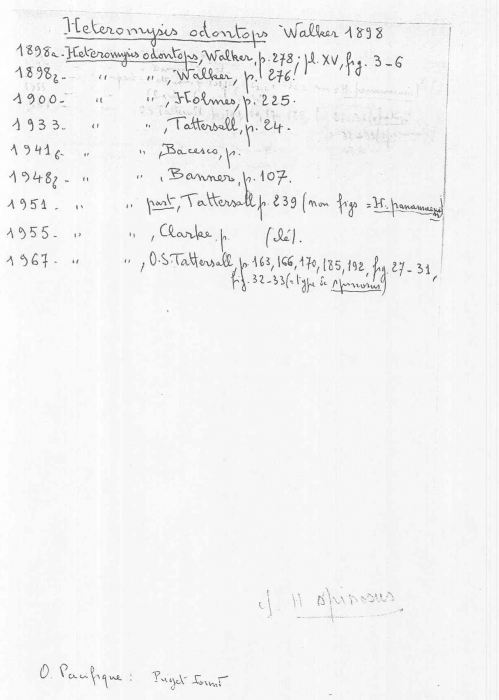 Heteromysis odontops Walker 1898
1898a- Heteromysis odontops, Walker, p. 278; pl. XV, fig. 3-6
1898b- " " , Walker, p. 276.
1900- " " , Holmes, p. 225.
1933- " " , Tattersall, p. 24.
1941b- " " , Bacesco, p.
1948b- " " , Banner, p. 107.
1951- " " part, Tattersall p. 239 (non figs = H. panamaensis
1955- " " , Clarke p. (clé).
1967- " " , O.S. Tattersall, p. 163, 166, 170, 185, 192, fig. 27-31,
fig. 32-33 (= type de spinosus)
cf. H spinosus
O. Pacifique : Puget Sound